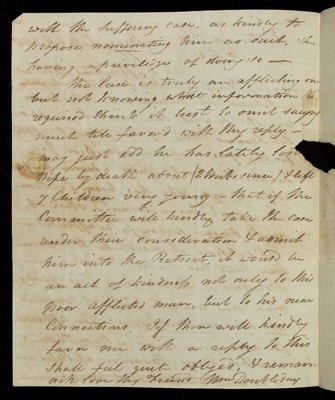 with the suffering case, as kindly to
propose nominating him as such, the
having privilidge of doing so —
The Case is truly an afflicting on
but not knowing what information is
required think it best to omit saying
much till favor'd with thy reply —
may just add he has lately lost
Wife by death about (2 Weeks since) & left
7 Children very young — that if the
Committee will kindly take the case
under their consideration & admit
him into the Retreat, it would be
an act of kindness not only to this
poor afflicted man, but to his near
Connections. If thou will kindly
favor me with a reply to this
shall feel quite obliged, & remain
with love thy Friend Wm Doubleday